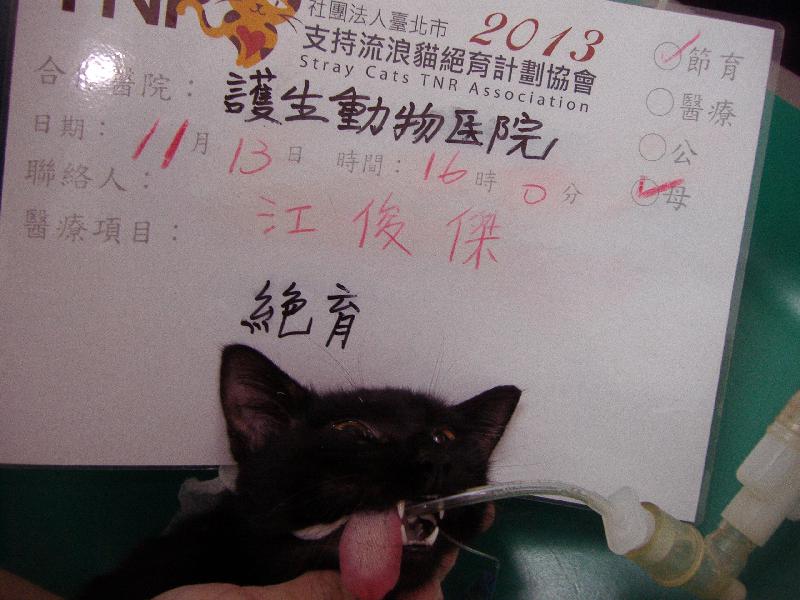 TNR
社團法人臺北市
2013
支持流浪貓絕育計劃協會
Stray Cats TNR Association
節育
合作醫院：護生動物医院
醫療
日期：11月13日 時間：16時0分
公
聯絡人：江俊傑
母
醫療項目：
絕育